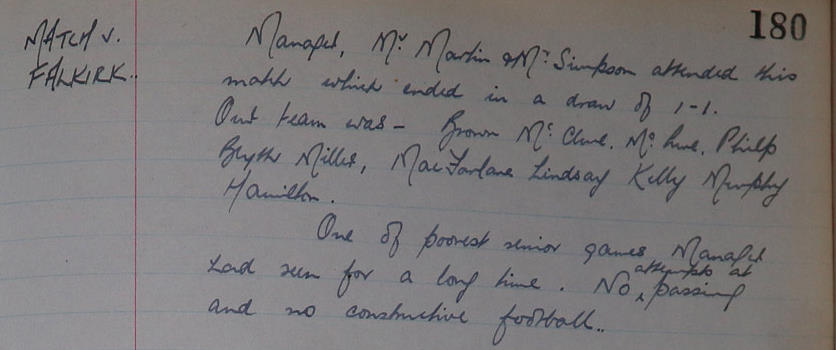 180
MATCH v.
FALKIRK..
Manager, Mr Martin & Mr Simpson attended this
match which ended in a draw of 1-1.
Our team was - Brown Mc Clure. Mc Lure. Philp
Blyth Miller, MacFarlane Lindsay Kelly Murphy
Hamilton.
One of poorest senior games Manager
had seen for a long time. No attempts at passing
and no constructive football..